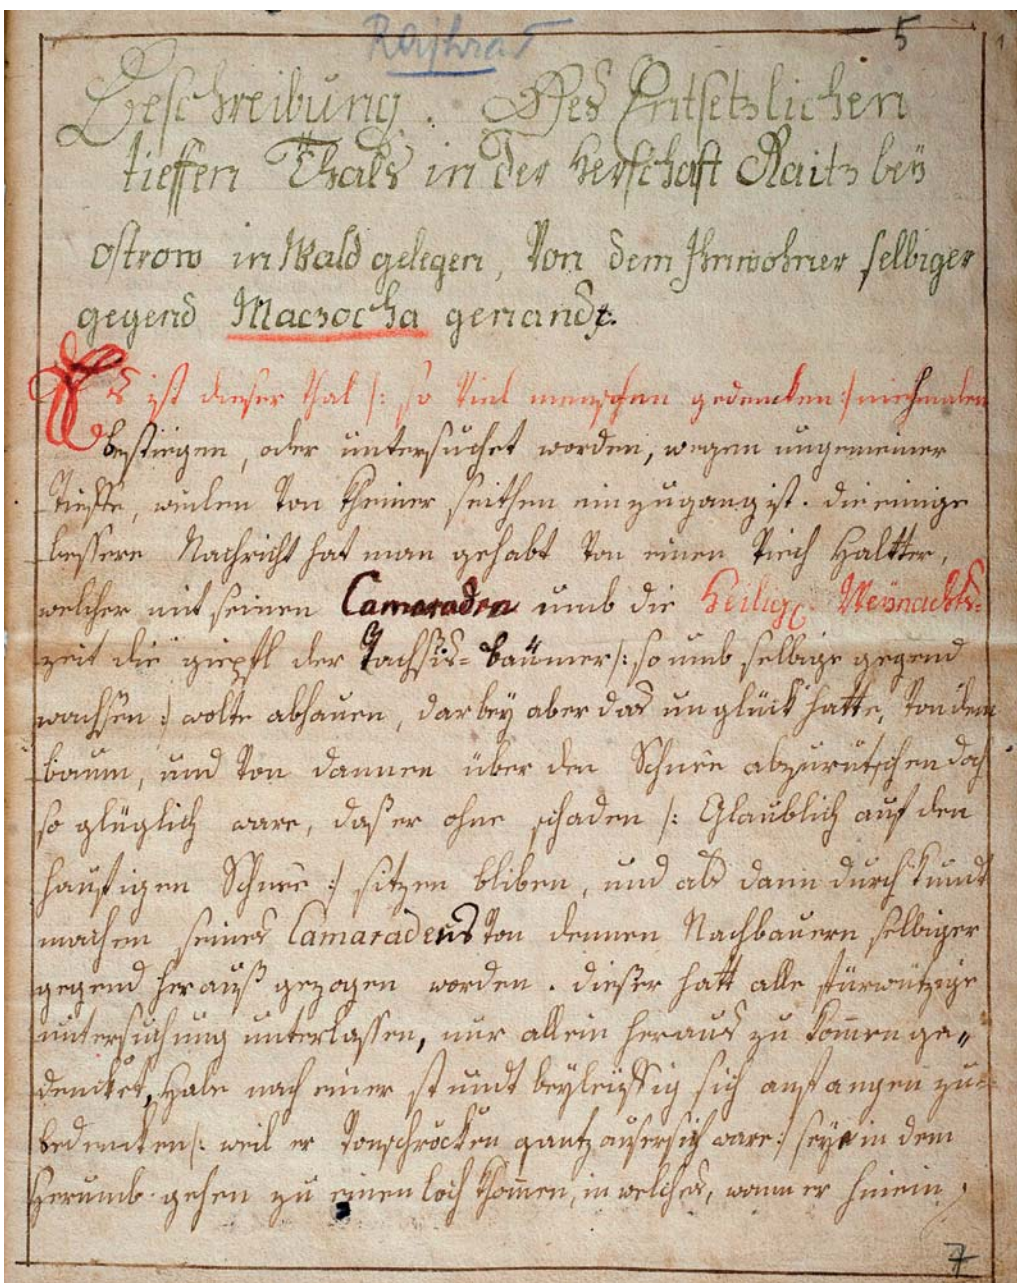 Rajhrad
5
Beschreibung. Des Entsetzlichen
tieffen Thals in der Herschaft Raitz beÿ
ostrow in Wald gelegen, Von dem Innwohner selbiger
gegend Maczocha genandt.
Es ist dieser Thal /: so Viel menschen gedencken :/ niehmalen
bestiegen, oder untersuchet worden, wegen ungemeiner
Tieffe, weilen Von kheiner seithen ein zugang ist. die einige
bessere Nachricht hat man gehabt Von einen Viech Haltter,
welcher mit seinen Camaraden umb die Heilige Weÿnachts-
zeit die giepfl der Tachsis-baümer /: so umb selbige gegend
wachsen :/ wolte abhauen, darbeÿ aber das unglück hatte, Von dem
baum, und Von dannen über den Schnee abzurutschen doch
so glüglich ware, daß er ohne schaden /: Glaublich auf den
hauffigen Schnee :/ sitzen bliben, und als dann durch kundt
machen seines Camaradens Von dennen Nachbauern selbiger
gegend herauß gezogen worden. dießer hatt alle fürwitzige
untersuchung unterlassen, nur allein heraus zu kommen ge„
dencket, Habe nach einer stundt beyleiffig sich anfangen zu-
bedencken /: weil er Vonschrocken gantz ausersich ware :/ seye in dem
Herumb gehen zu einen loch khommen, in welches, wann er hinein
7